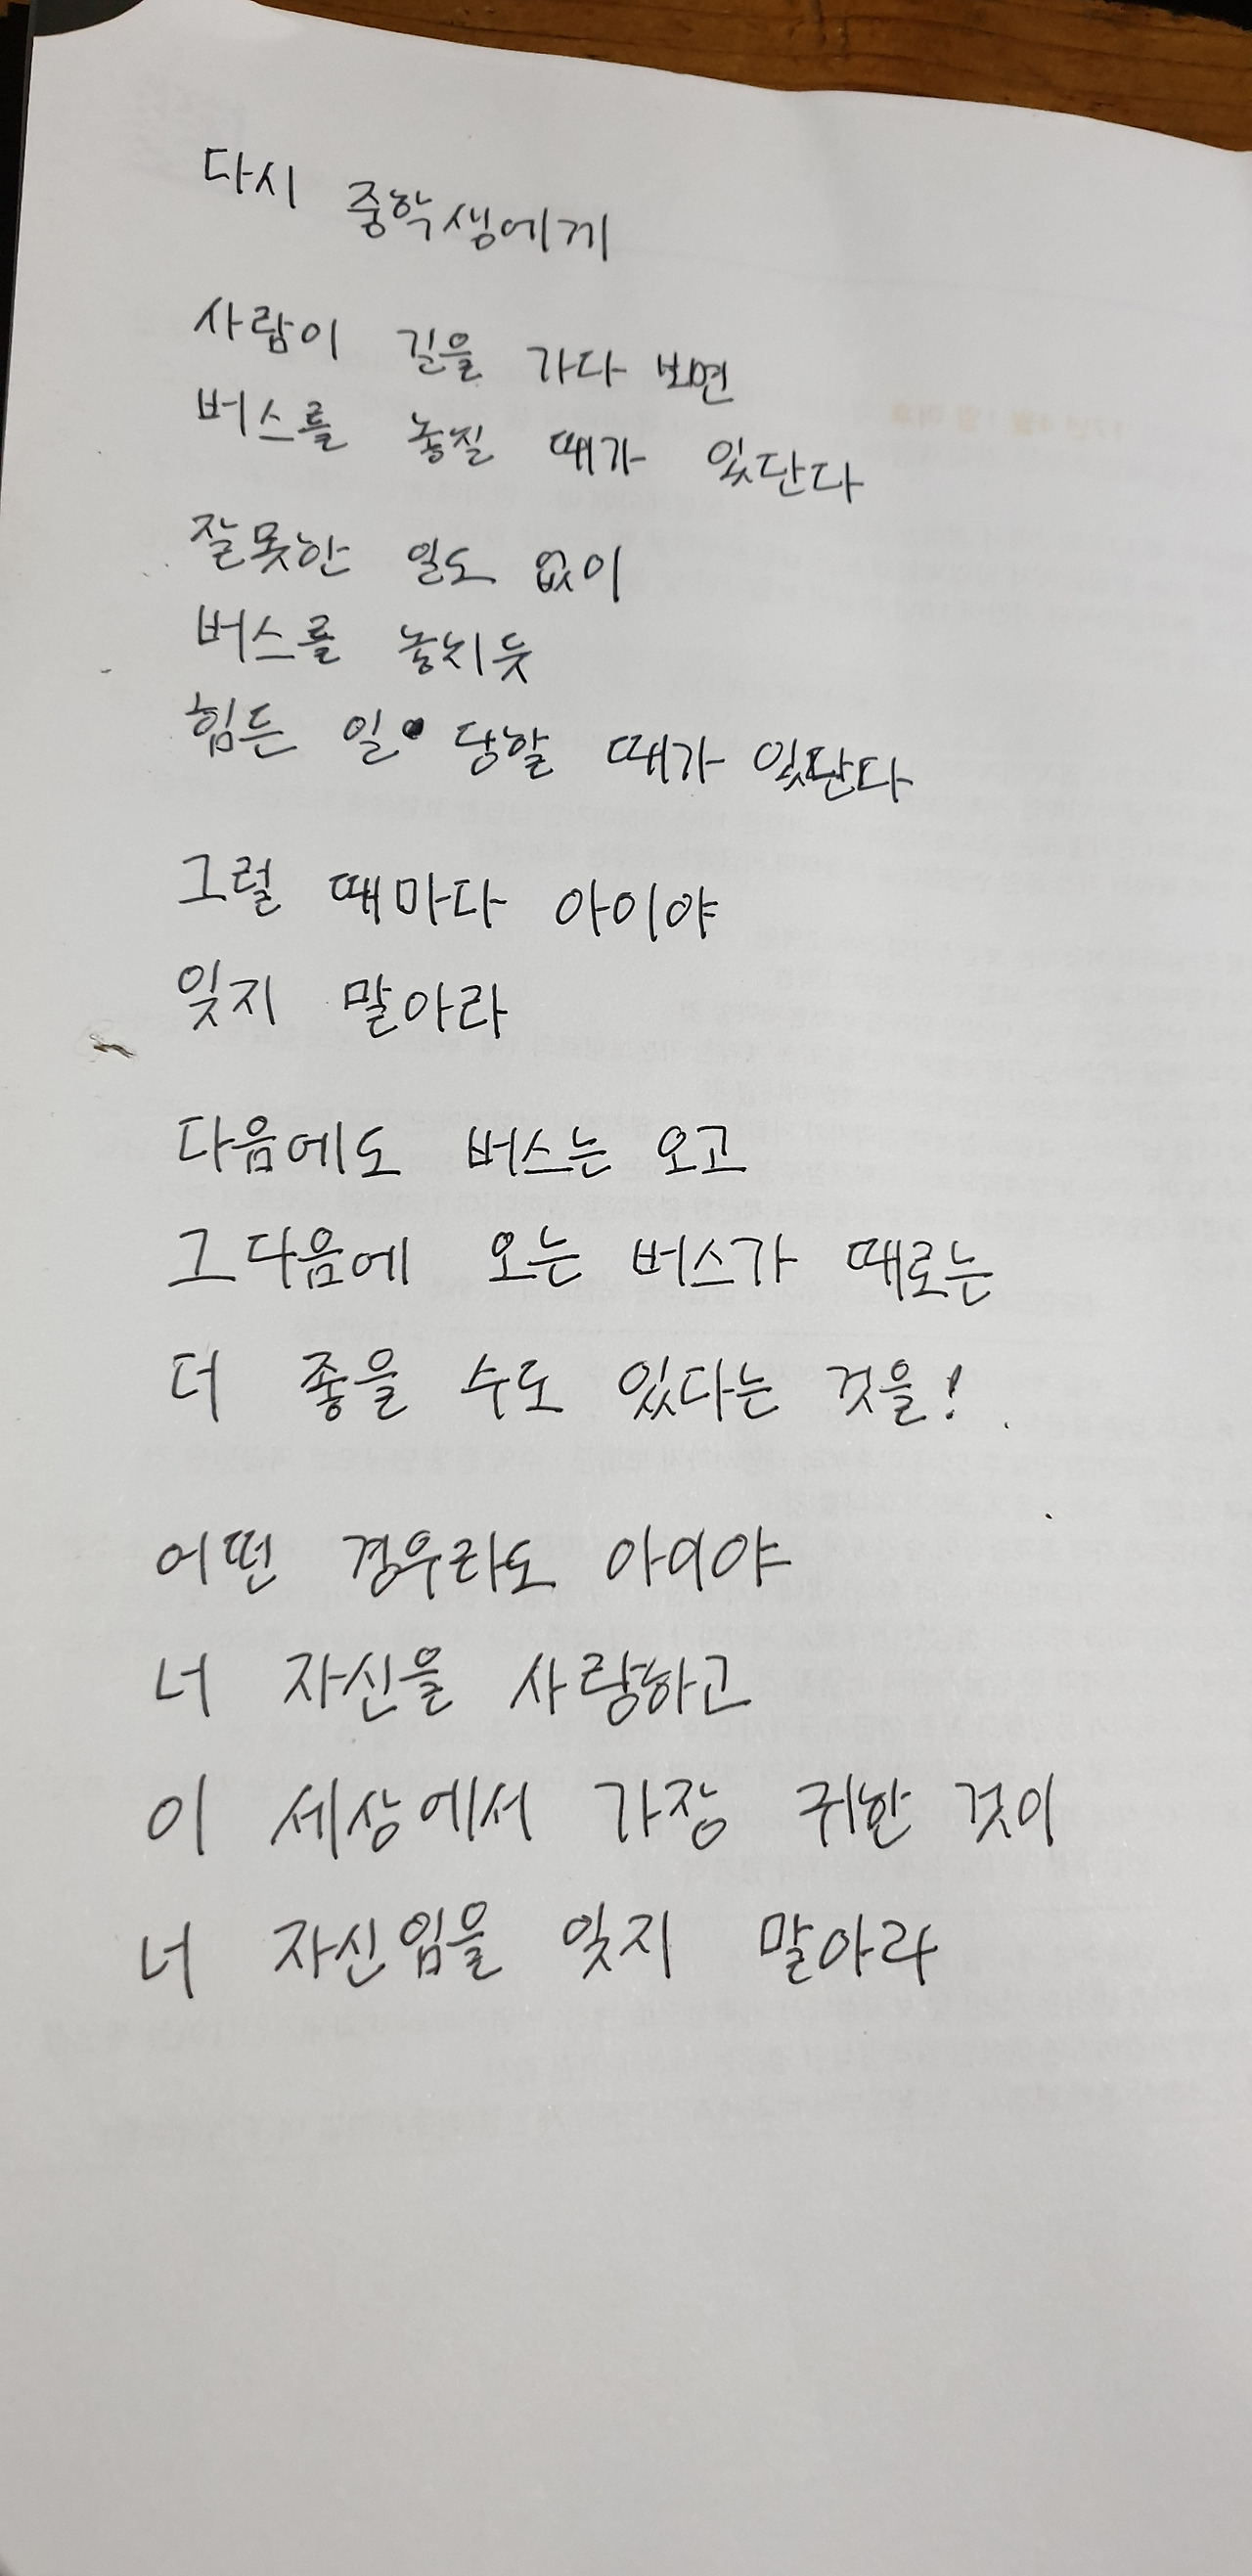 다시 중학생에게
사람이 길을 가다 보면
버스를 놓칠 때가 있단다
잘못한 일도 없이
버스를 놓치듯
힘든 일 당할 때가 있단다
그럴 때마다 아이야
잊지 말아라
다음에도 버스는 오고
그다음에 오는 버스가 때로는
더 좋을 수도 있다는 것을!
어떤 경우라도 아이야
너 자신을 사랑하고
이 세상에서 가장 귀한 것이
너 자신임을 잊지 말아라